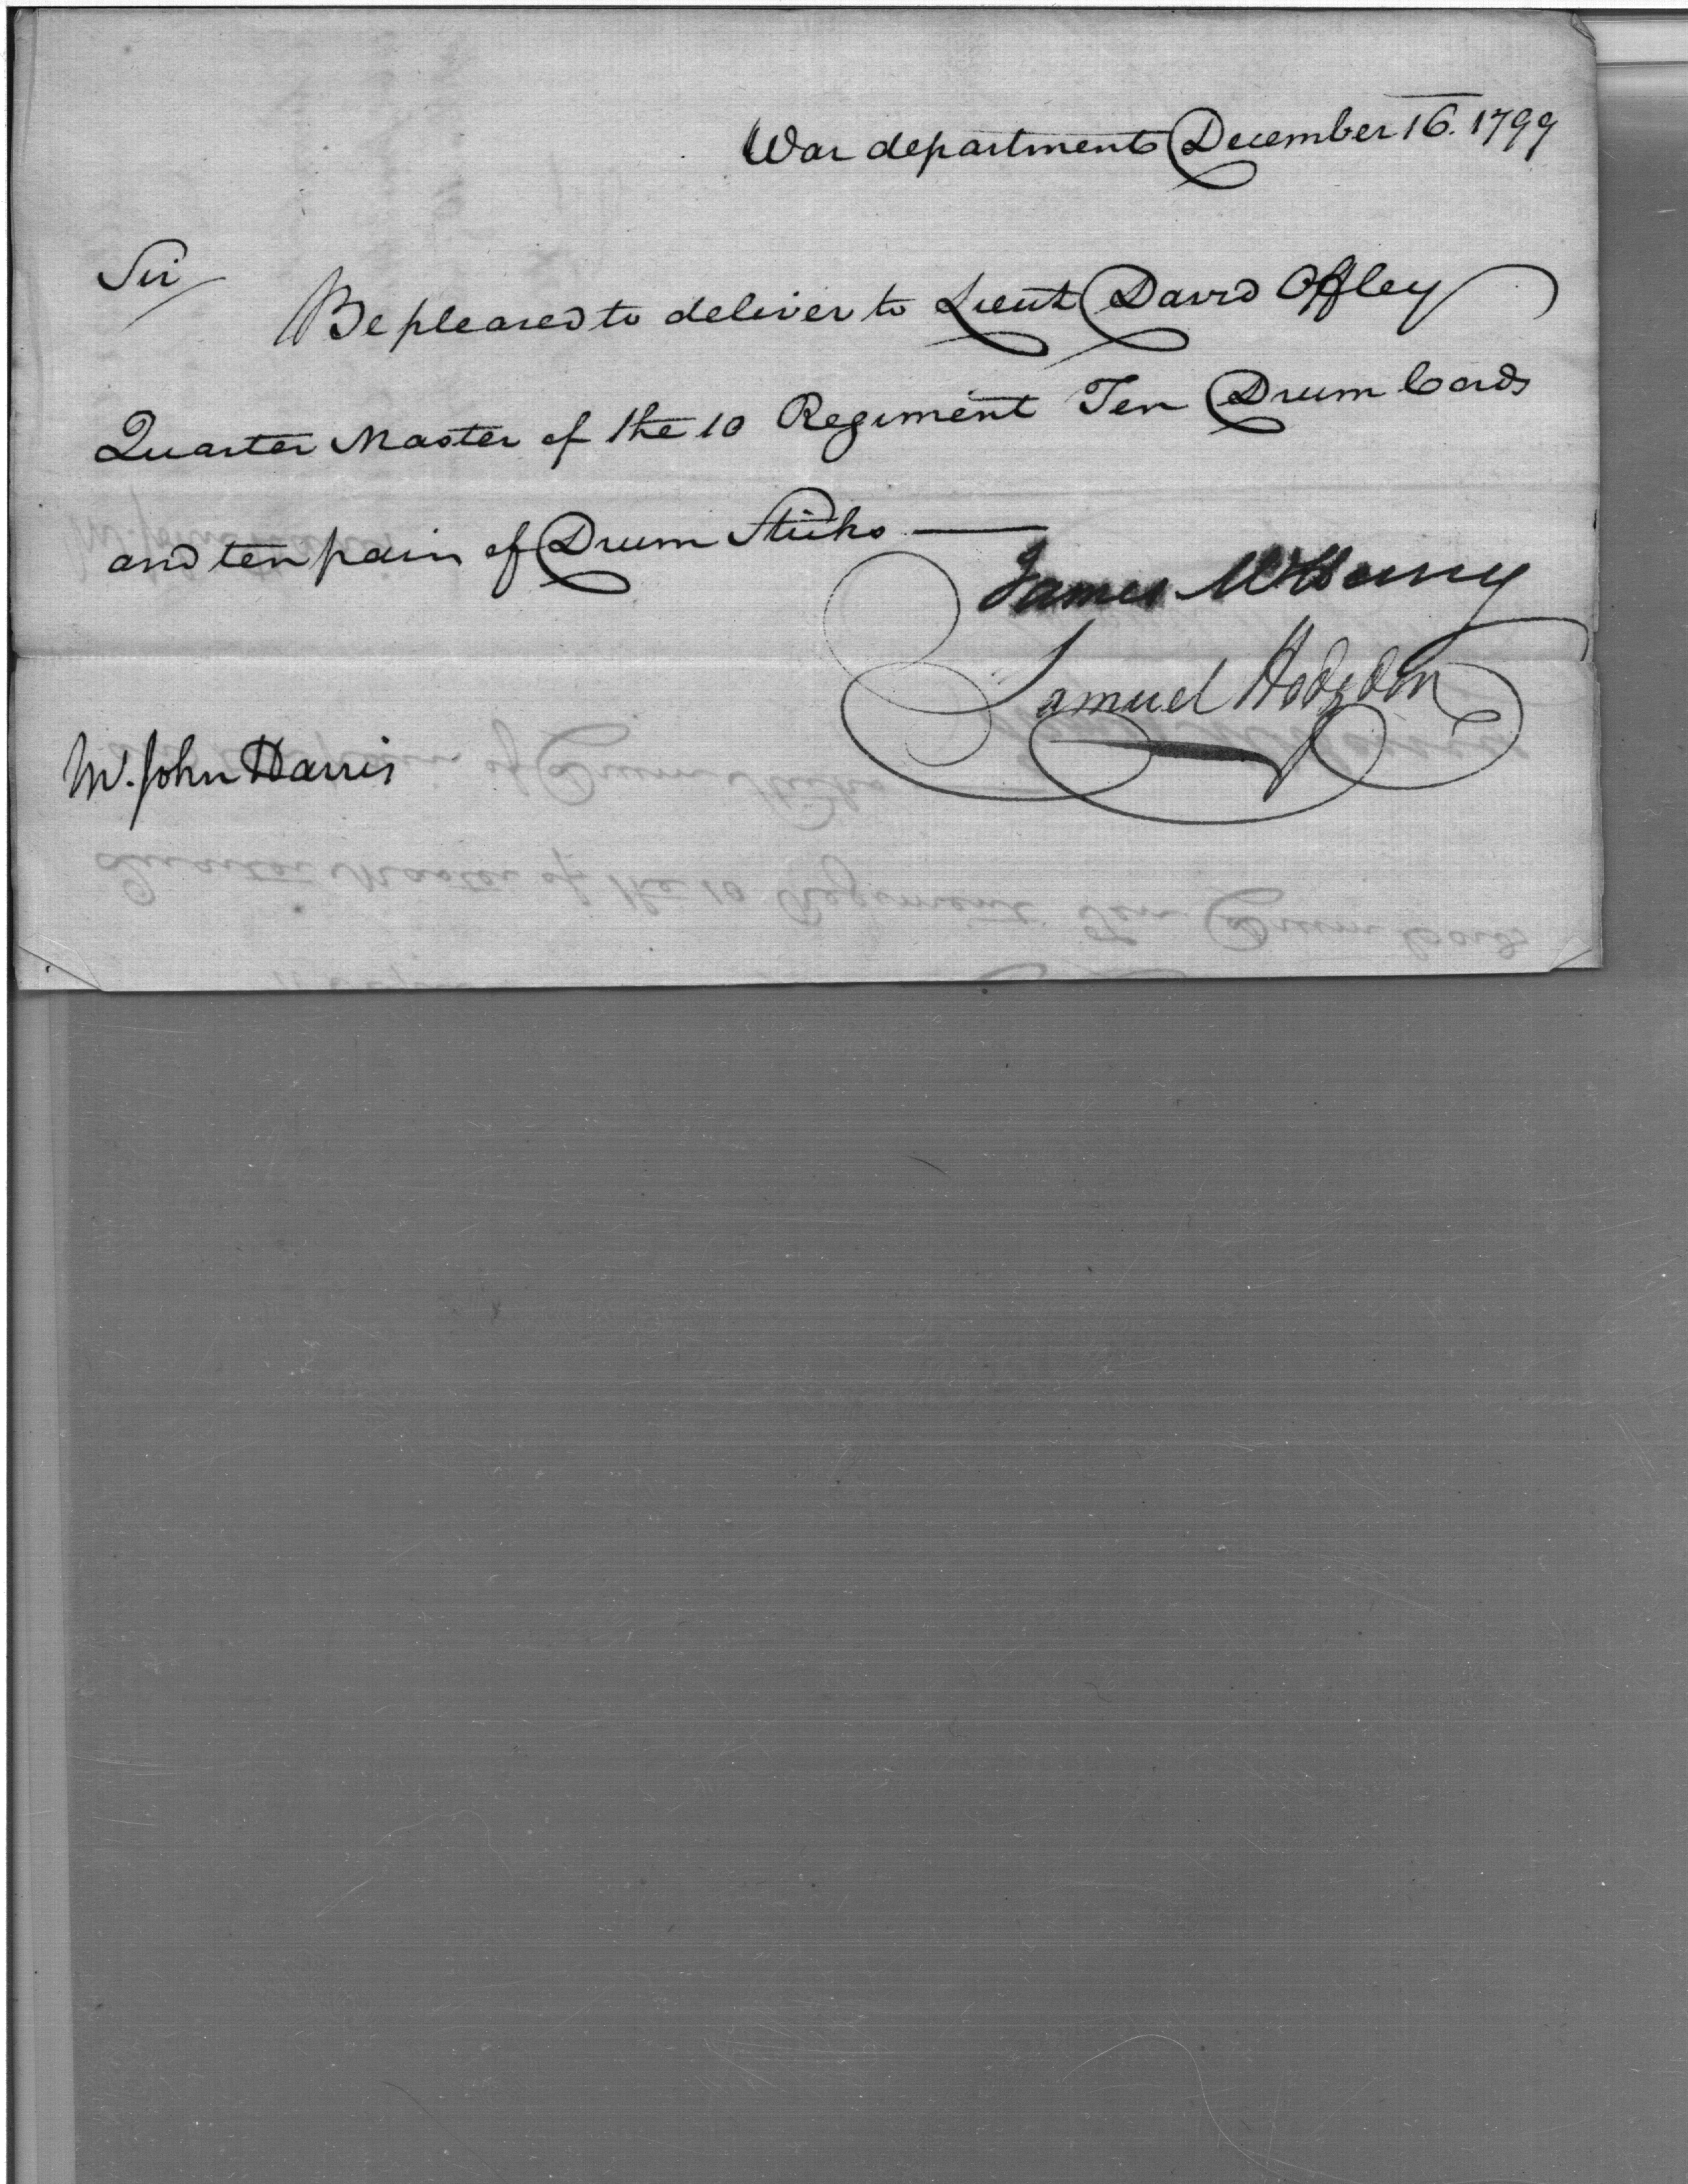 War department December 16. 1799
Sir
Be pleased to deliver to Lieut David Offley
Quarter Master of the 10 Regiment Ten Drum Cords
and ten pairs of Drum Sticks —
James McHenry
Samuel Hodgdon
Mr. John Harris